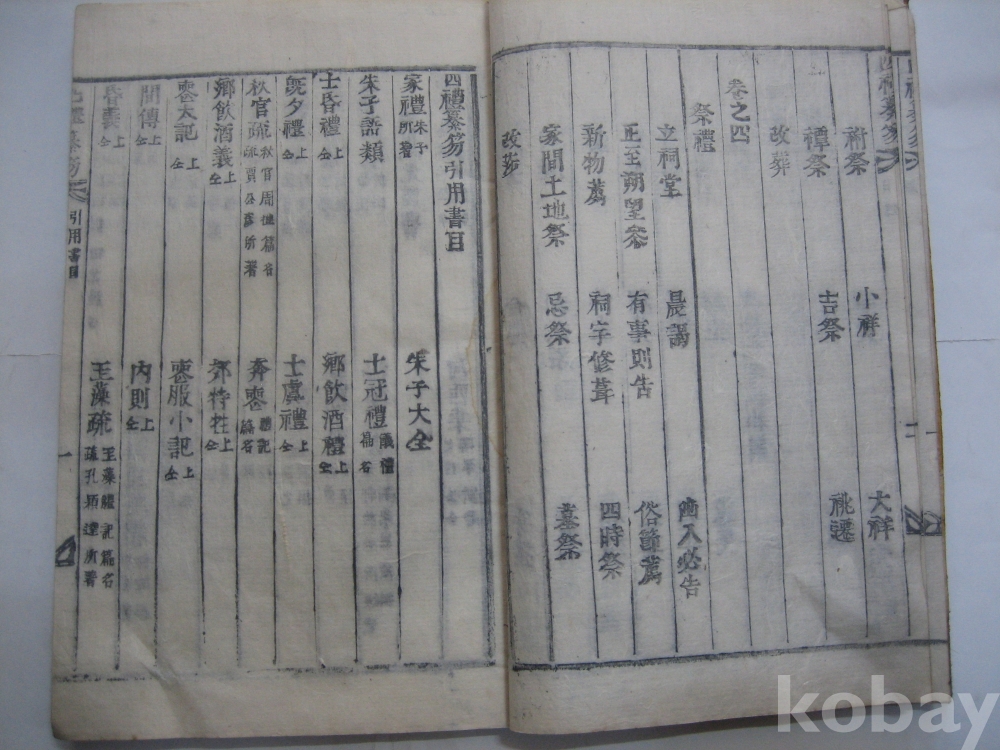 祔祭 小祥 大祥
禫祭 吉祭 祧遷
改葬
卷之四
祭禮
立祠堂 晨謁 出入必告
正至朔望叅 有事則告 俗節薦
新物薦 祠宇修葺 四時祭
家間土地祭 忌祭 墓祭
改莎
四禮纂笏引用書目
家禮 朱子所著 朱子大全
朱子語類 士冠禮 儀禮篇名
士昏禮 上仝 鄉飲酒禮 上仝
旣夕禮 上仝 士虞禮 上仝
秋官疏 秋官周禮篇名疏賈公彥所著 奔喪 禮記篇名
鄉飲酒義 上仝 郊特牲 上仝
喪大記 上仝 喪服小記 上仝
間傳 上仝 內則 上仝
昏義 上仝 玉藻疏 玉藻禮記篇名疏孔穎達所著
四禮纂笏 引用書目 一
kobay